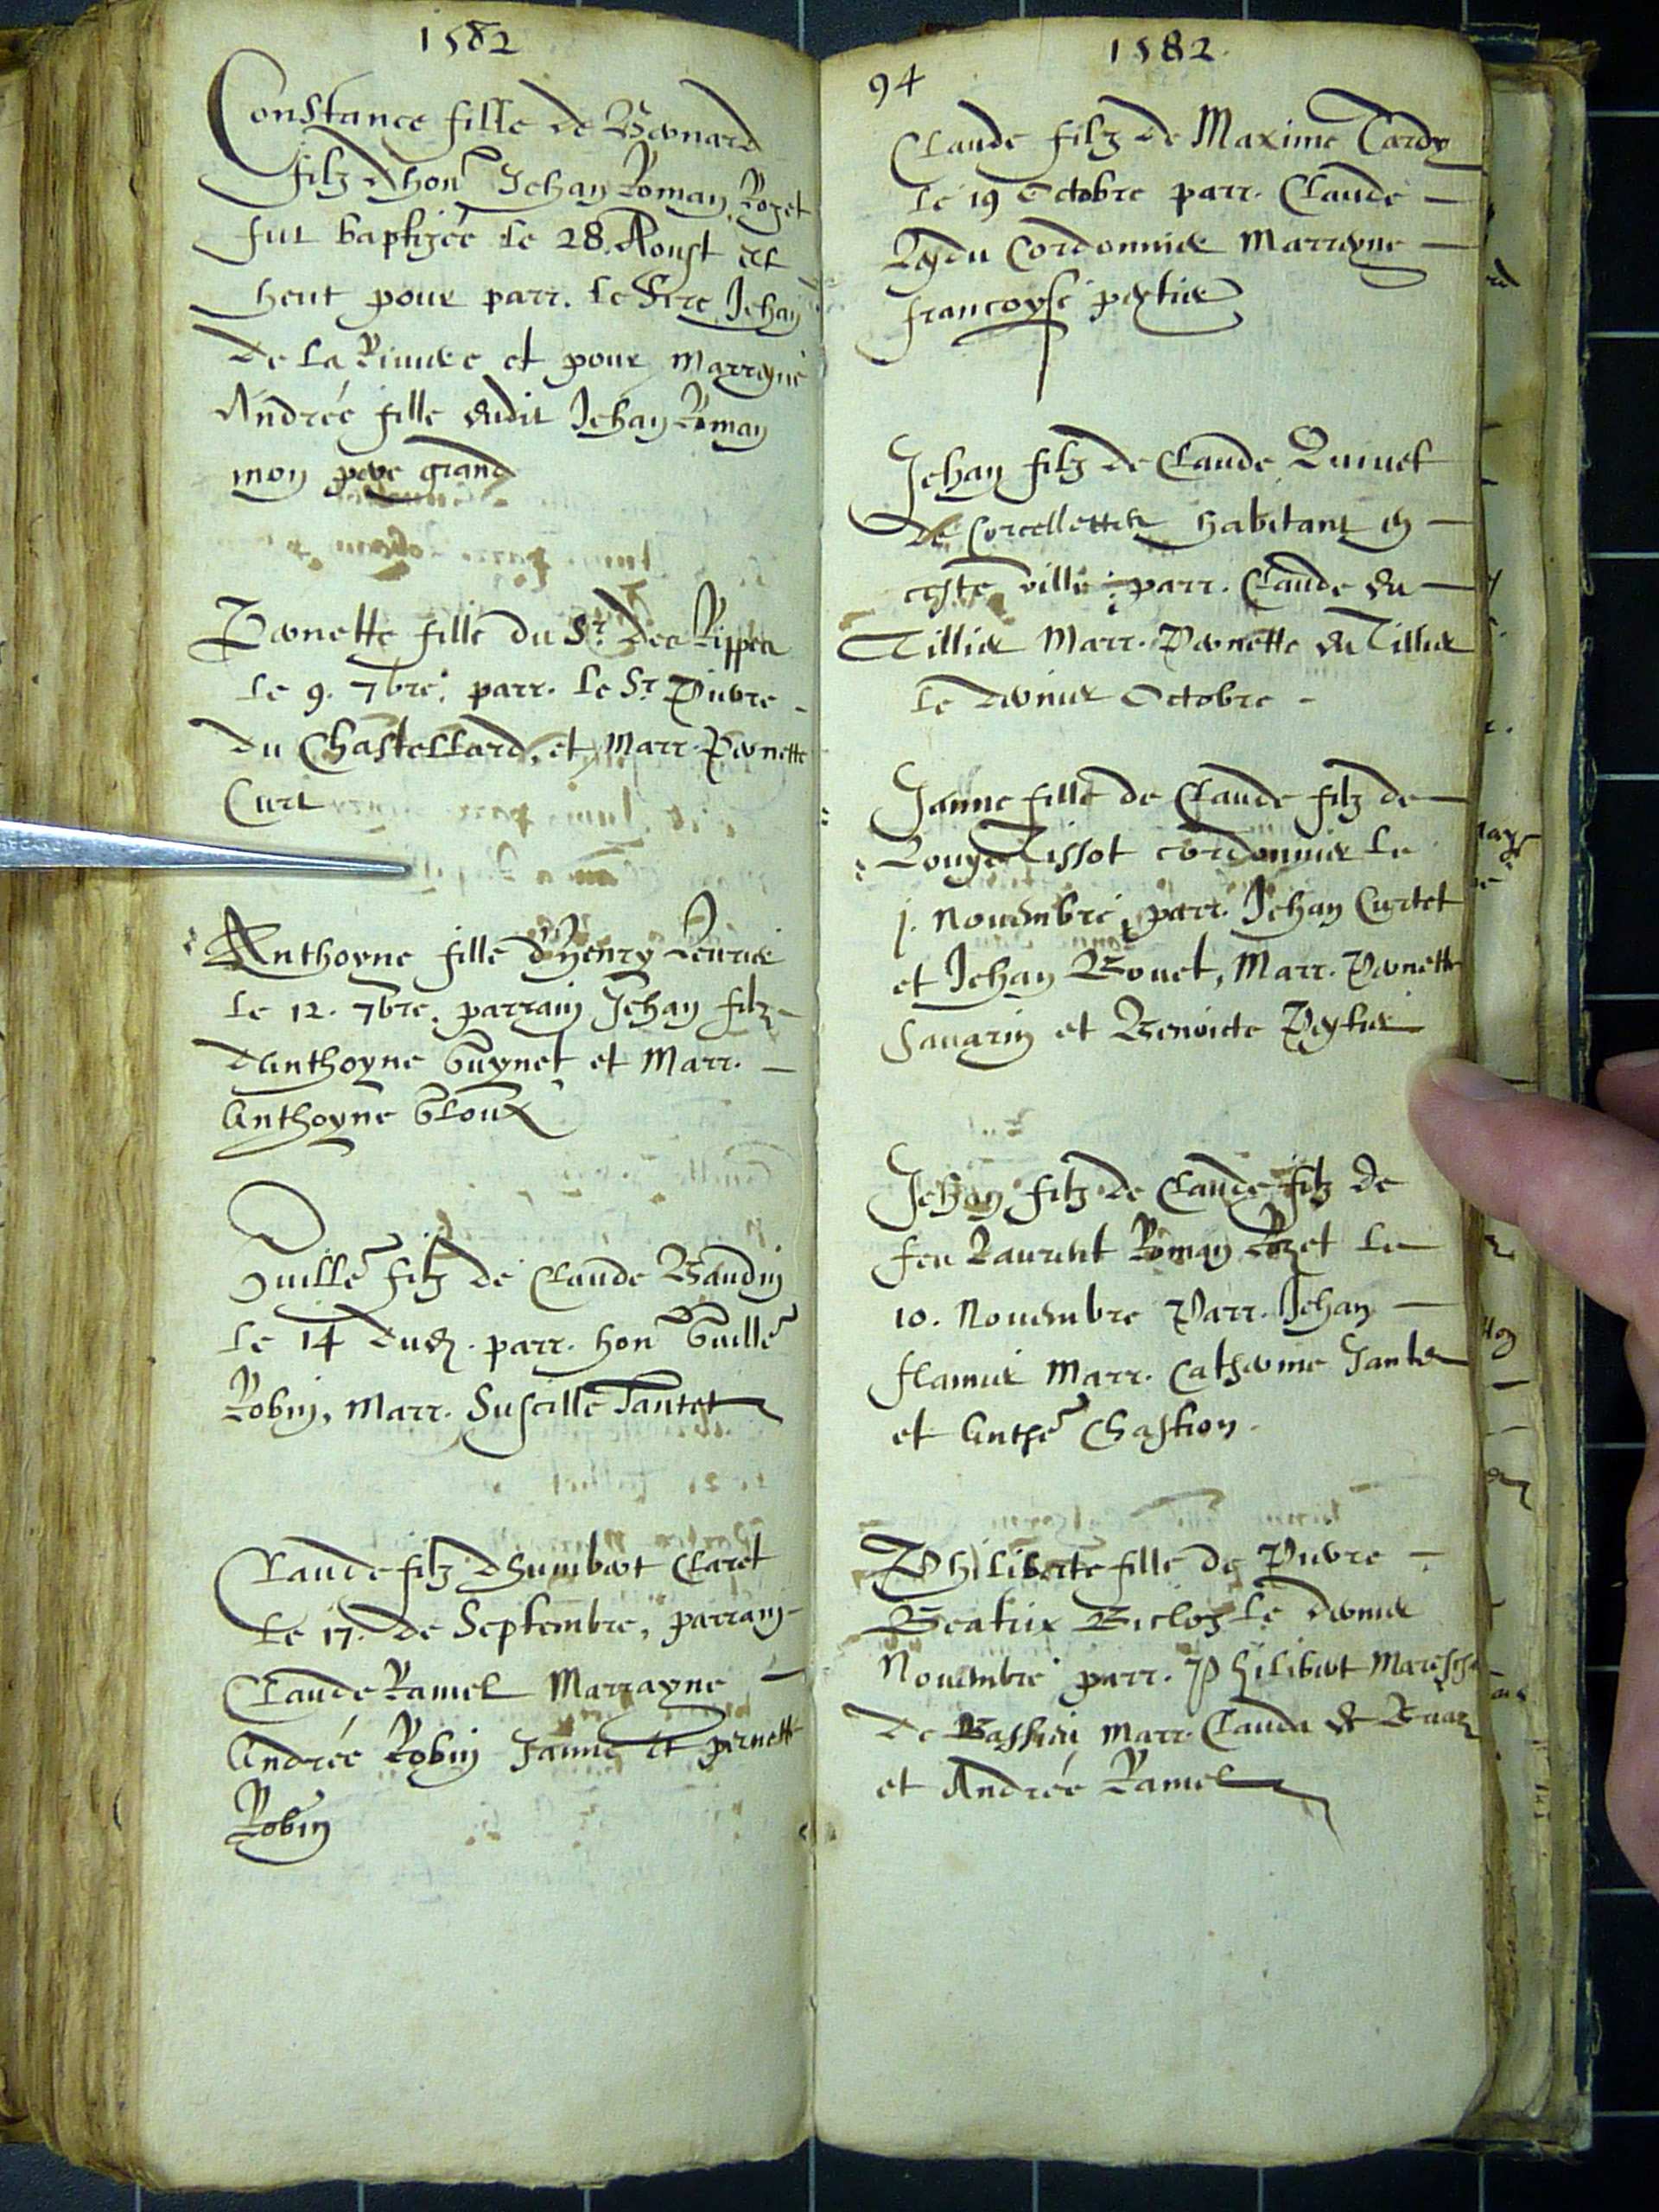 1582
Constance fille de Bernard
filz dhon Jehan Roman Rozet
fut baptizée le 28. Aoust et
heut pour parr. le Sire Jehan
De la Riviere et pour Marreyne
Andrée fille dudit Jehan Roman
mon pere grand
Pernette fille du Sr. des Rippes
le 9. 7bre. parr. le Sr Pierre
du Chastellard, et Marr. Pernette
Curt
Anthoyne fille d'henry
le 12. 7bre. parrain Jehan filz
danthoyne Guynet et Marr.
Anthoyne
Guille filz de Claude Baudin
le 14 dud. parr. hon Guille
Robin, Marr. Tantet
Claude filz dhumbert Claret
le 17. de Septembre, parrain
Claude Ramel Marrayne
Andrée Robin Janne et pernette
Robin
94
1582.
Claude filz de Maxime Tardy
le 19 Octobre parr. Claude
Cordonnier Marreyne
francoyse
Jehan filz de Claude
de Corcelletes habitant en
ceste ville: parr. Claude du
Tillier Marr. Pernette du Tillier
le dernier Octobre
Janne fille de Claude filz de
Tissot cordonnier le
j. Novembre, parr. Jehan Curtet
et Jehan Bouet, Marr. Pernette
Savarin et Benoicte
Jehan filz de Claude filz de
feu Laurent Roman Rozet le
10. Novembre Parr. Jehan
Marr. Catherine
et Anthe Chastion.
Philiberte fille de Pierre
Beatrix le dernier
Novembre parr. Philibert
de Marr. Clauda
et Andrée Ramel